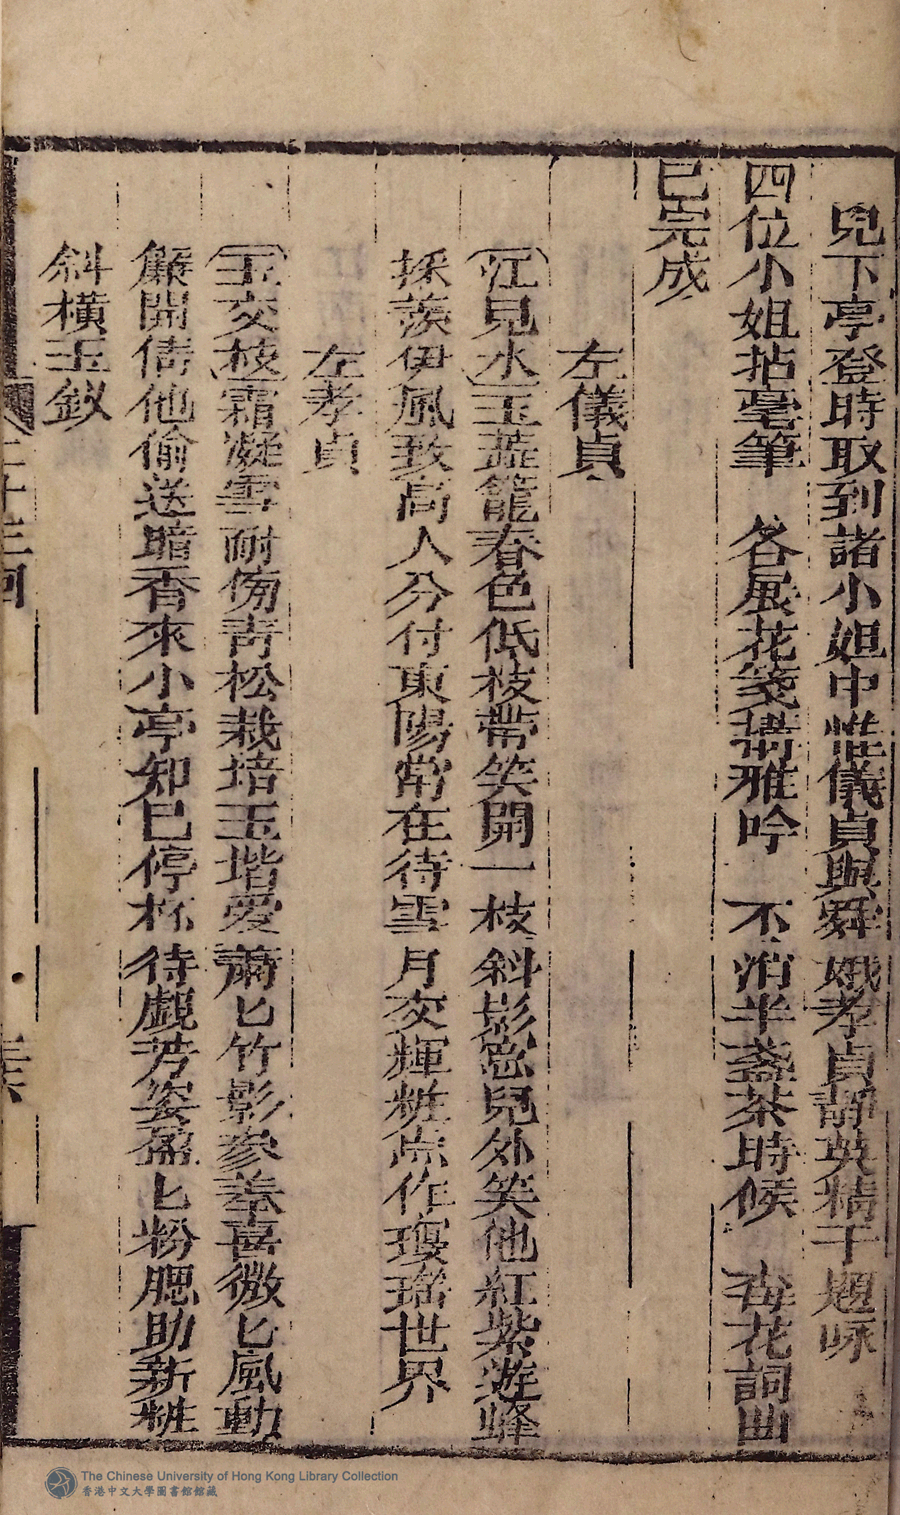 兒下亭登時取到諸小姐中惟儀貞與舜娥孝貞靜英精于題咏
四位小姐拈毫筆　各展花箋搆雅吟　不消半盞茶時候　每花詞曲
已完成
左儀貞
江兒水　玉蕋籠春色低枝帶笑開一枝斜影窓兒外笑他紅紫遊蜂
採羨伊風致高人分付東陽常在待雪月交輝粧点作瓊瑤世界
左孝貞
玉交枝　霜凝雪耐傍靑松栽培玉堦愛蕭匕竹影參差喜微匕風動
簾開倩他偷送暗香來小亭知已停杯待覷芳姿盈匕粉腮助新粧
斜橫玉釵
二十三回
三六
The Chinese University of Hong Kong Library Collection
香港中文大學圖書館館藏